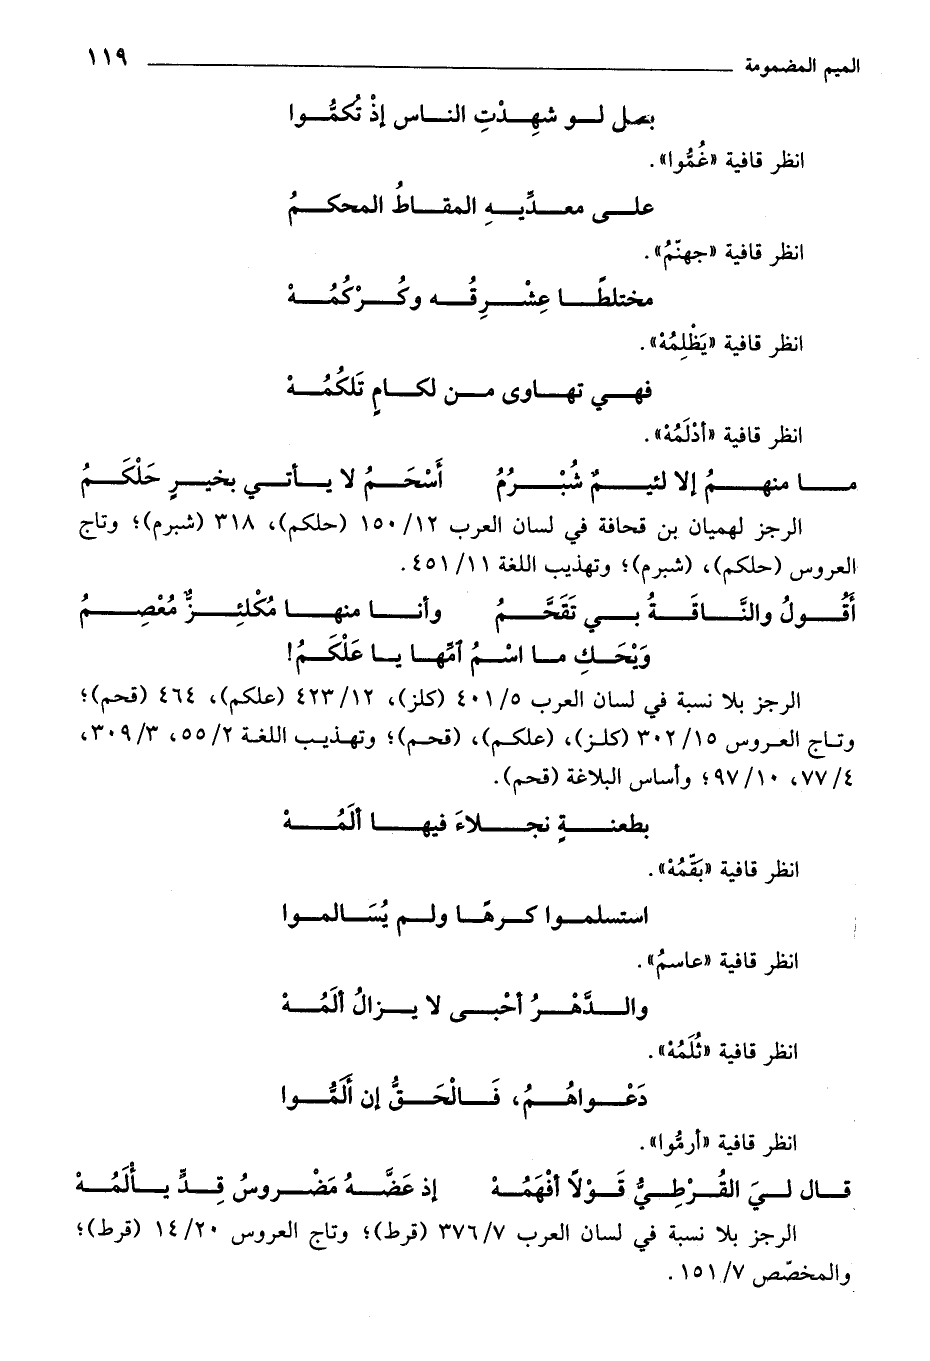 الميم المضمومة ١١٩
بصل لو شهِدْتِ الناس إذْ تُكمُّوا
انظر قافية «غُمُّوا».
على معدِّيهِ المقاطُ المحكمُ
انظر قافية «جهنّمُ».
مختلطًا عِشْرِقُه وكُرْكُمُهْ
انظر قافية «يَظْلِمُهْ».
فهي تهاوى من لكامٍ تَلكُمُهْ
انظر قافية «أدْلَمُهْ».
ما منهمُ إلا لئيمٌ شُبْرُمُ أَسْحَمُ لا يأتي بخيرٍ حَلْكَمُ
الرجز لهميان بن قحافة في لسان العرب ١٢/ ١٥٠ (حلكم)، ٣١٨ (شبرم)؛ وتاج
العروس (حلكم)، (شبرم)؛ وتهذيب اللغة ١١/ ٤٥١.
أَقُولُ والنَّاقَةُ بي تَقَحَّمُ وأنا منها مُكْلَئِزٌّ مُعْصِمُ
وَيْحَكِ ما اسْمُ اُمِّها يا عَلْكَمُ!
الرجز بلا نسبة في لسان العرب ٥/ ٤٠١ (كلز)، ١٢/ ٤٢٣ (علكم)، ٤٦٤ (قحم)؛
وتاج العروس ١٥/ ٣٠٢ (كلز)، (علكم)، (قحم)؛ وتهذيب اللغة ٢/ ٥٥، ٣/ ٣٠٩،
٤/ ٧٧، ١٠/ ٩٧؛ وأساس البلاغة (قحم).
بطعنةٍ نجلاءَ فيها ألَمُهْ
انظر قافية «بَقَّمُهْ».
استسلموا كرهًا ولم يُسَالموا
انظر قافية «عاسمُ».
والدَّهْرُ أحْبى لا يزالُ ألَمُهْ
انظر قافية «ثُلَمُهْ».
دَعْواهُمُ، فَالْحَقُّ إن أَلَمُّوا
انظر قافية «أرمُّوا».
قال ليَ القُرْطِيُّ قَوْلًا أفْهَمُهْ إذ عَضَّهُ مَضْروسُ قِدٍّ يأْلَمُهْ
الرجز بلا نسبة في لسان العرب ٧/ ٣٧٦ (قرط)؛ وتاج العروس ٢٠/ ١٤ (قرط)؛
والمخصّص ٧/ ١٥١.